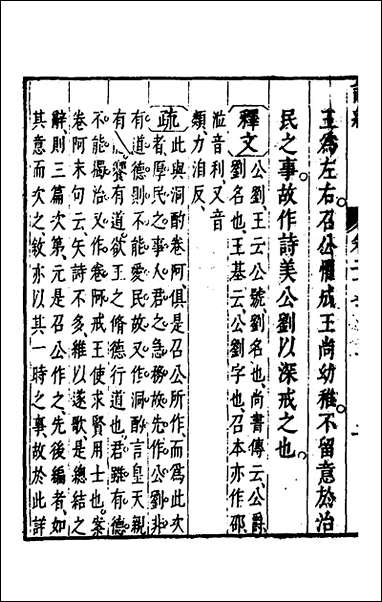 王為左右召公懼成王尚幼稚不留意於治
民之事故作詩美公劉以深戒之也
釋文 公劉王云公號劉名也尚書傳云公爵
劉名也王基云公劉字也召本亦作邵
涖音利又音
類力洎反
疏 此與泂酌卷阿俱是召公所作而為此次
者厚民之事人君之急務故先作公劉非
有道德則不能愛民故又作泂酌言皇天親
有德饗有道欲王之脩德行道也君雖有德
不能獨治又作卷阿戒王使求賢用士也案
卷阿末句云矢詩不多維以遂歌是總結之
辭則三篇次第元是召公作之先後編者如
其意而次之敘亦以其一時之事故於此詳